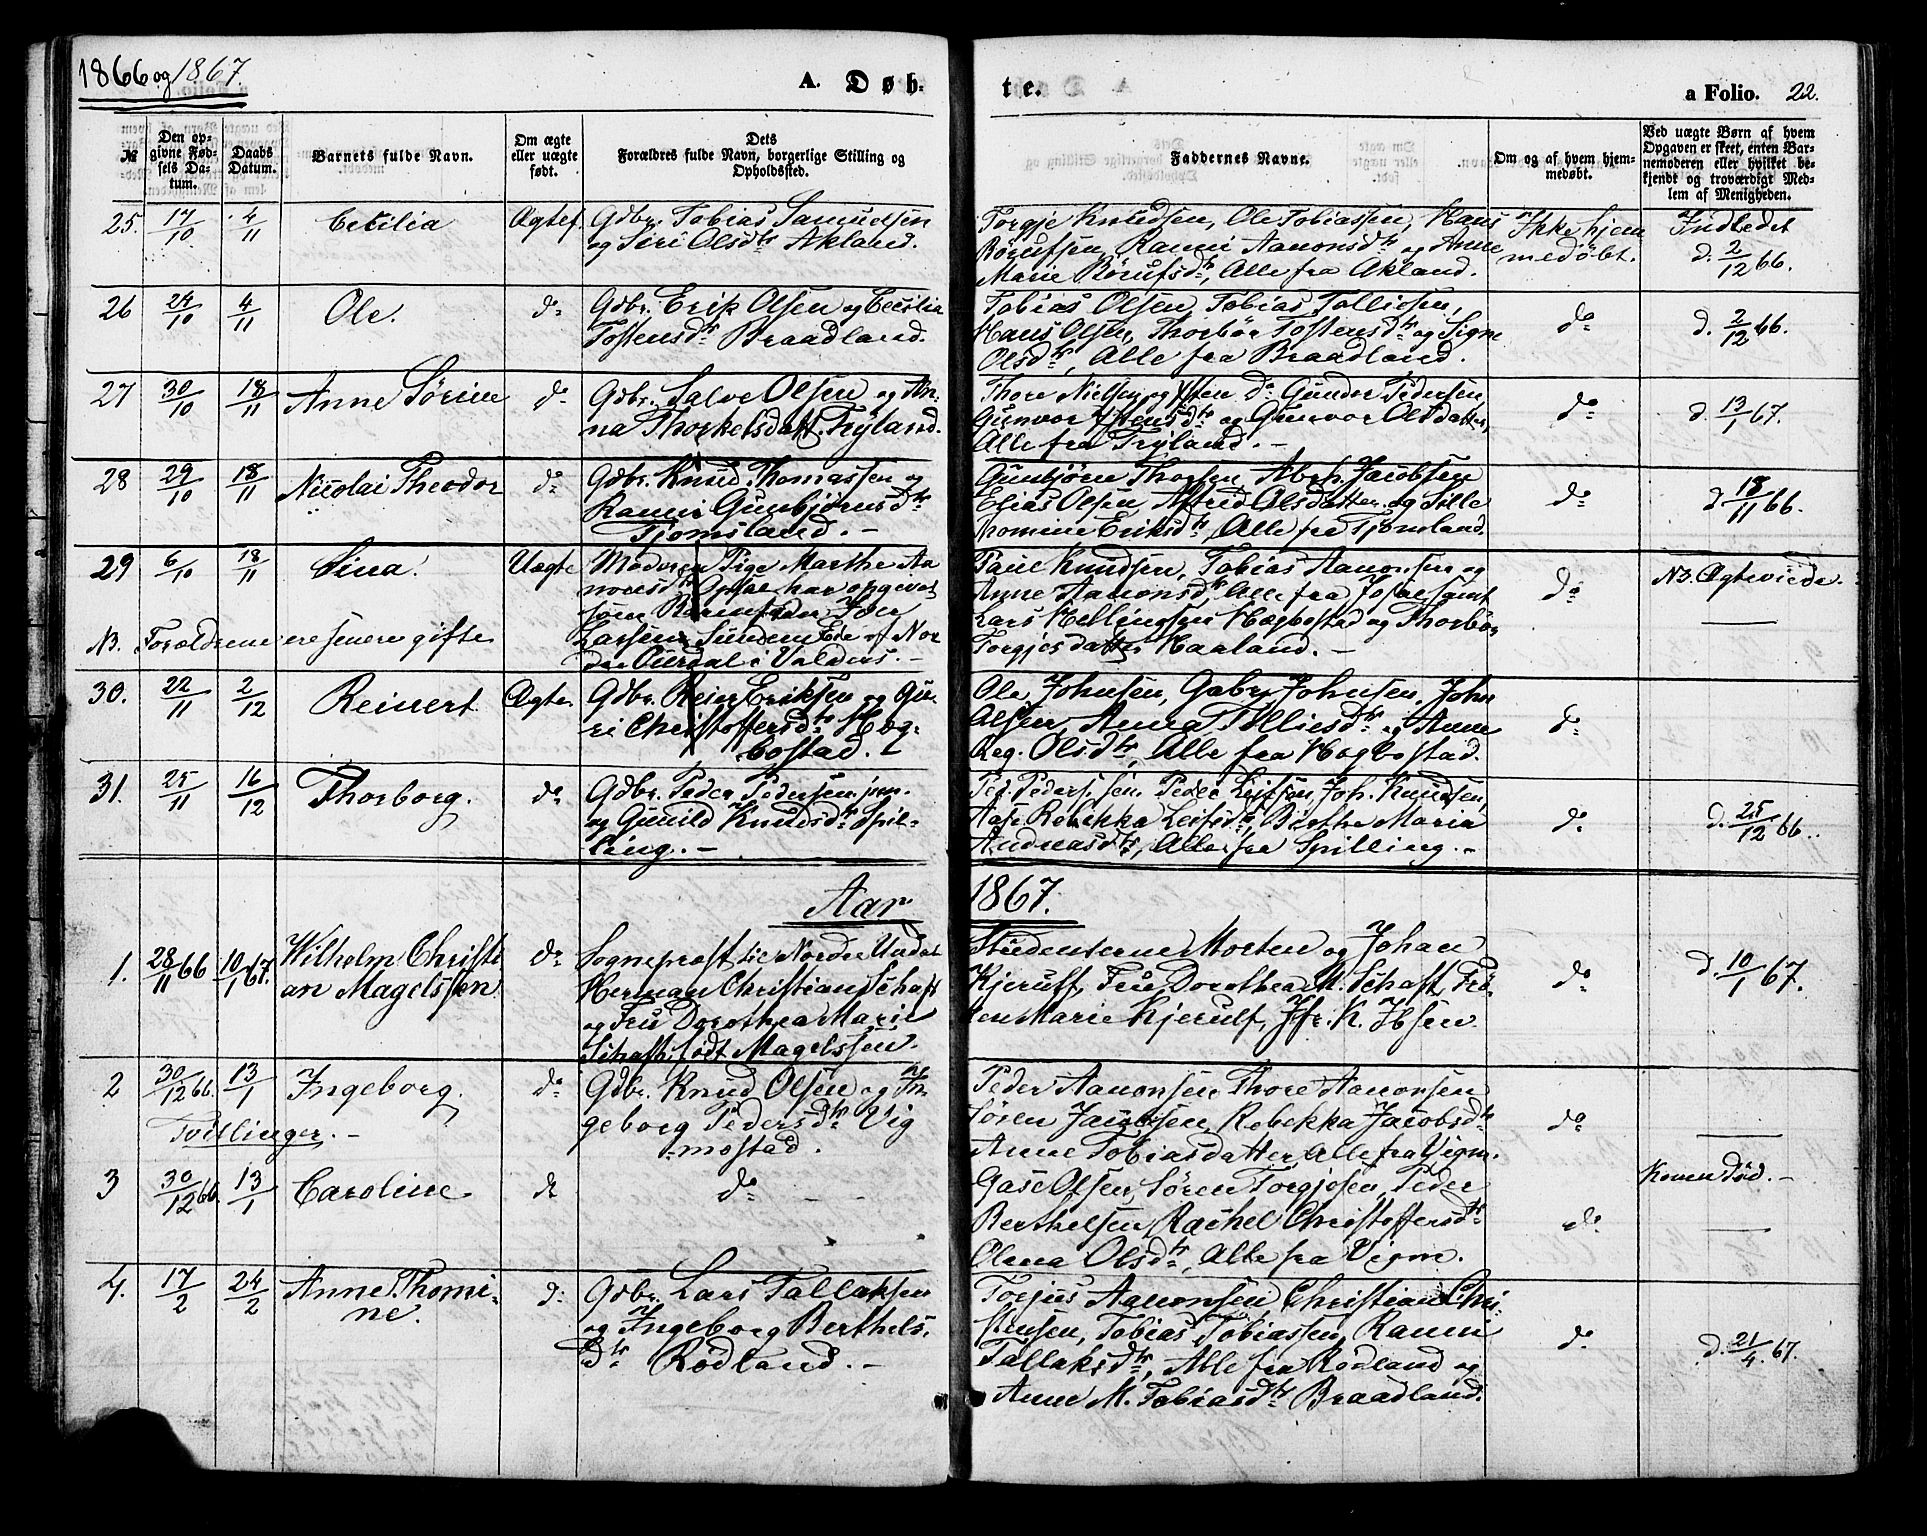 1866 og 1867.
A. Døb-
te.
a Folio. 22.
№
Den op-
givne Fød-
sels Da-
tum.
Daabs
Datum.
Barnets fulde Navn.
Om ægte
eller uægte
født.
Dets
Forældres fulde Navn, borgerlige Stilling og
Opholdssted.
Faddernes Navne.
Om og af hvem hjem-
medøbt.
Ved uægte Børn af hvem
Opgaven er skeet, enten Bar-
nemoderen eller hvilket be-
kjendt og troværdigt Med-
lem af Menigheden.
25. 17/10 4/11 Cecilia Ægtef.
Gdbr. Tobias Samuelsen
og Siri Olsdtr Akland.
Torgje Knudsen, Ole Tobiassen, Hans
Rørufsen, Ranni Aanonsdtr og Anne
Marie Rørufsdtr, Alle fra Akland.
Ikke hjem
medøbt.
Indledet
d. 2/12 66.
26 24/10 4/11 Ole. do
Gdbr. Erik Olsen og Cecilia
Tostensdtr Braadland.
Tobias Olsen, Tobias Tolliesen,
Hans Olsen, Thorbør Tostensdtr og Signe
Olsdtr, Alle fra Braadland.
do
d. 2/12 66.
27 30/10 18/11 Anne Sørine do
Gdbr. Salve Olsen og An-
na Thorkelsdatt. Trÿland.
Thore Nielsen og Ysten do Gunder Pedersen,
Gunvor Ystensdtr og Gunvor Olsdatter,
Alle fra Trÿland. -
do
d. 13/1 67.
28 29/10 18/11 Nicolai Theodor do
Gdbr. Knud Thomassen og
Ranni Gunbjørnsdtr
Tjomsland. -
Gunbjørn Thorsen, Abrh. Jacobsen
Elias Olsen, Astrid Olsdatter og Sille
Thomine Eriksdtr, Alle fra Tjomsland.
do
d. 18/11 66.
29 6/10 18/11 Sina. Uægte
Moderen Pige Marthe Aa
nonsdtr har opgivet
som Barnefader Iver
Larsen Sundem Eie af Nor
dre Ourdal i Valders. -
Knudsen, Tobias Aanonsen og
Anne Aanonsdtr, Alle fra samt
Lars Hellingsen Hægbostad og Thorbør
Torgjesdatter Haaland. -
do
NB. Ægteviede.
NB. Forældrene ere senere gifte
30. 22/11 2/12 Reinert Ægte
Gdbr. Reier Eriksen og Gu-
ri Christoffersdtr Høg-
bostad.
Ole Johnsen, Gabr. Johnsen, John
Olsen, Anna Tolliesdtr og Anne
Reg. Olsdtr, Alle fra Høgbostad.
do
31. 25/11 16/12 Thorborg. do
Gdbr. Peder Pedersen jun.
og Gunild Knudsdtr Spil-
ling. -
Ped. Pedersen, Peder Leifsen, Joh. Knudsen,
Aase Rebekka Leifsdtr, Birthe Maria
Andreasdtr, Alle fra Spilling. -
do
d. 25/12 66.
Aar
1867.
1. 28/11 66 10/1 67. Wilhelm Christi
an Magelssen do
Sogneprest til Nordre Undal
Herman Christian Schaft
og Fru Dorothea Marie
Schaft født Magelssen.
Studenterne Morten og Johan
Kjerulf, Fru Dorothea M. Schaft, Frø-
ken Marie Kjerulf, Jfr. K. Ibsen.
do
d. 10/1 67.
2 30/12 66. 13/1 Ingeborg. do
Tvillinger. -
Gdbr. Knud Olsen og In-
geborg Pedersdtr Vig
mostad.
Peder Aanonsen, Thore Aanonsen
Søren Jacobsen, Rebekka Jacobsdtr
Anne Tobiasdatter, Alle fra Vigm.
do
3 30/12 66. 13/1 Caroline do
do - -
Gase Olsen, Søren Torgjesen, Peder
Berthelsen, Rachel Christoffersdtr
Olena Olsdtr, Alle fra Vigm.
do
Konen død. -
4. 17/2 24/2 Anne Thomi-
ne. do
Gdbr. Lars Tallaksen
og Ingeborg Berthels-
dtr Rødland. -
Torjus Aanonsen, Christian Chri-
stensen, Tobias Tobiassen, Ranni
Tallaksdtr, Alle fra Rødland og
Anne M. Tobiasdtr Braadland.
do
d. 21/4 67.